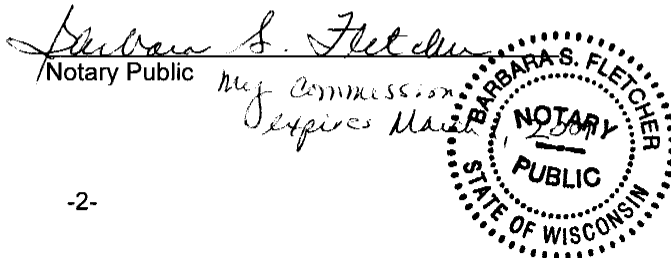 Barbara S. Fletcher
Notary Public
My Commission
expires March
BARBARA S. FLETCHER
NOTARY
PUBLIC
STATE OF WISCONSIN
-2-